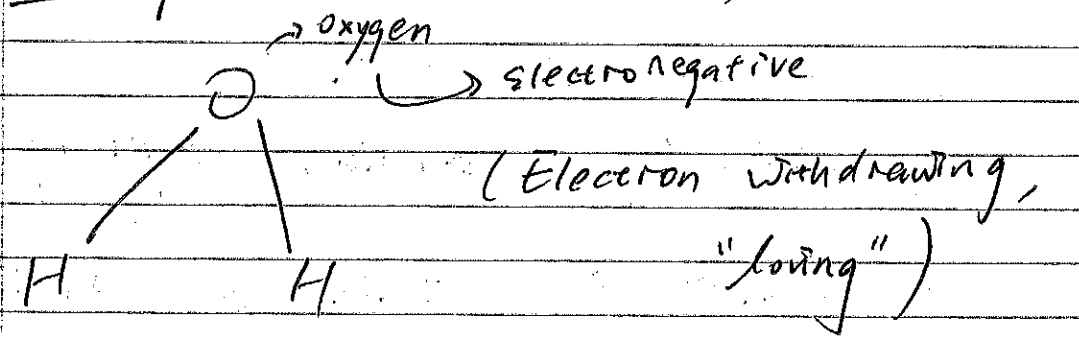 oxygen
O
Electronegative
(Electron withdrawing,
"loving")
H H